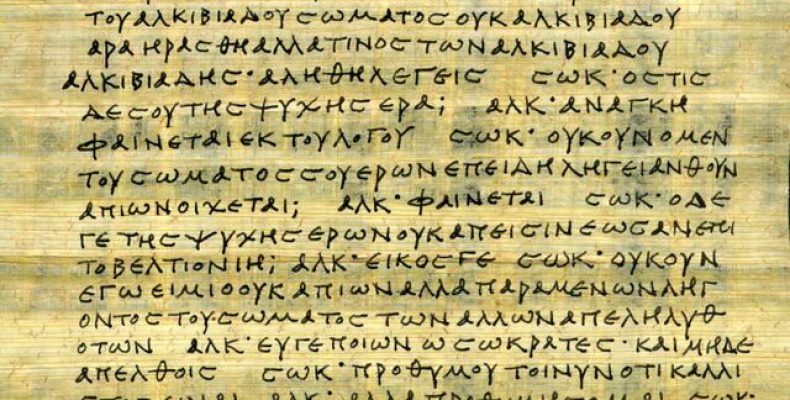 ΤΟΥΑΛΚΙΒΙΑΔΟΥϹΩΜΑΤΟϹΟΥΚΑΛΚΙΒΙΑΔΟΥ
ΑΡΑΗΡΑϹΘΗΑΛΛΑΤΙΝΟϹΤΩΝΑΛΚΙΒΙΑΔΟΥ
ΑΛΚΙΒΙΑΔΗϹ·ΑΛΗΘΗΛΕΓΕΙϹ ϹΩΚ·ΟϹΤΙϹ
ΔΕϹΟΥΤΗϹΨΥΧΗϹΕΡΑ; ΑΛΚ·ΑΝΑΓΚΗ
ΦΑΙΝΕΤΑΙΕΚΤΟΥΛΟΓΟΥ ϹΩΚ·ΟΥΚΟΥΝΟΜΕΝ
ΤΟΥϹΩΜΑΤΟϹϹΟΥΕΡΩΝΕΠΕΙΔΗΛΗΓΕΙΑΝΘΟΥΝ
ΑΠΙΩΝΟΙΧΕΤΑΙ; ΑΛΚ·ΦΑΙΝΕΤΑΙ ϹΩΚ·ΟΔΕ
ΓΕΤΗϹΨΥΧΗϹΕΡΩΝΟΥΚΑΠΕΙϹΙΝΕΩϹΑΝΕΠΙ
ΤΟΒΕΛΤΙΟΝΙΗ; ΑΛΚ·ΕΙΚΟϹΓΕ ϹΩΚ·ΟΥΚΟΥΝ
ΕΓΩΕΙΜΙΟΟΥΚΑΠΙΩΝΑΛΛΑΠΑΡΑΜΕΝΩΝΛΗΓ
ΟΝΤΟϹΤΟΥϹΩΜΑΤΟϹΤΩΝΑΛΛΩΝΑΠΕΛΗΛΥΘ
ΟΤΩΝ ΑΛΚ·ΕΥΓΕΠΟΙΩΝΩϹΩΚΡΑΤΕϹ·ΚΑΙΜΗΔΕ
ΑΠΕΛΘΟΙϹ ϹΩΚ·ΠΡΟΘΥΜΟΥΤΟΙΝΥΝΟΤΙΚΑΛΛΙ